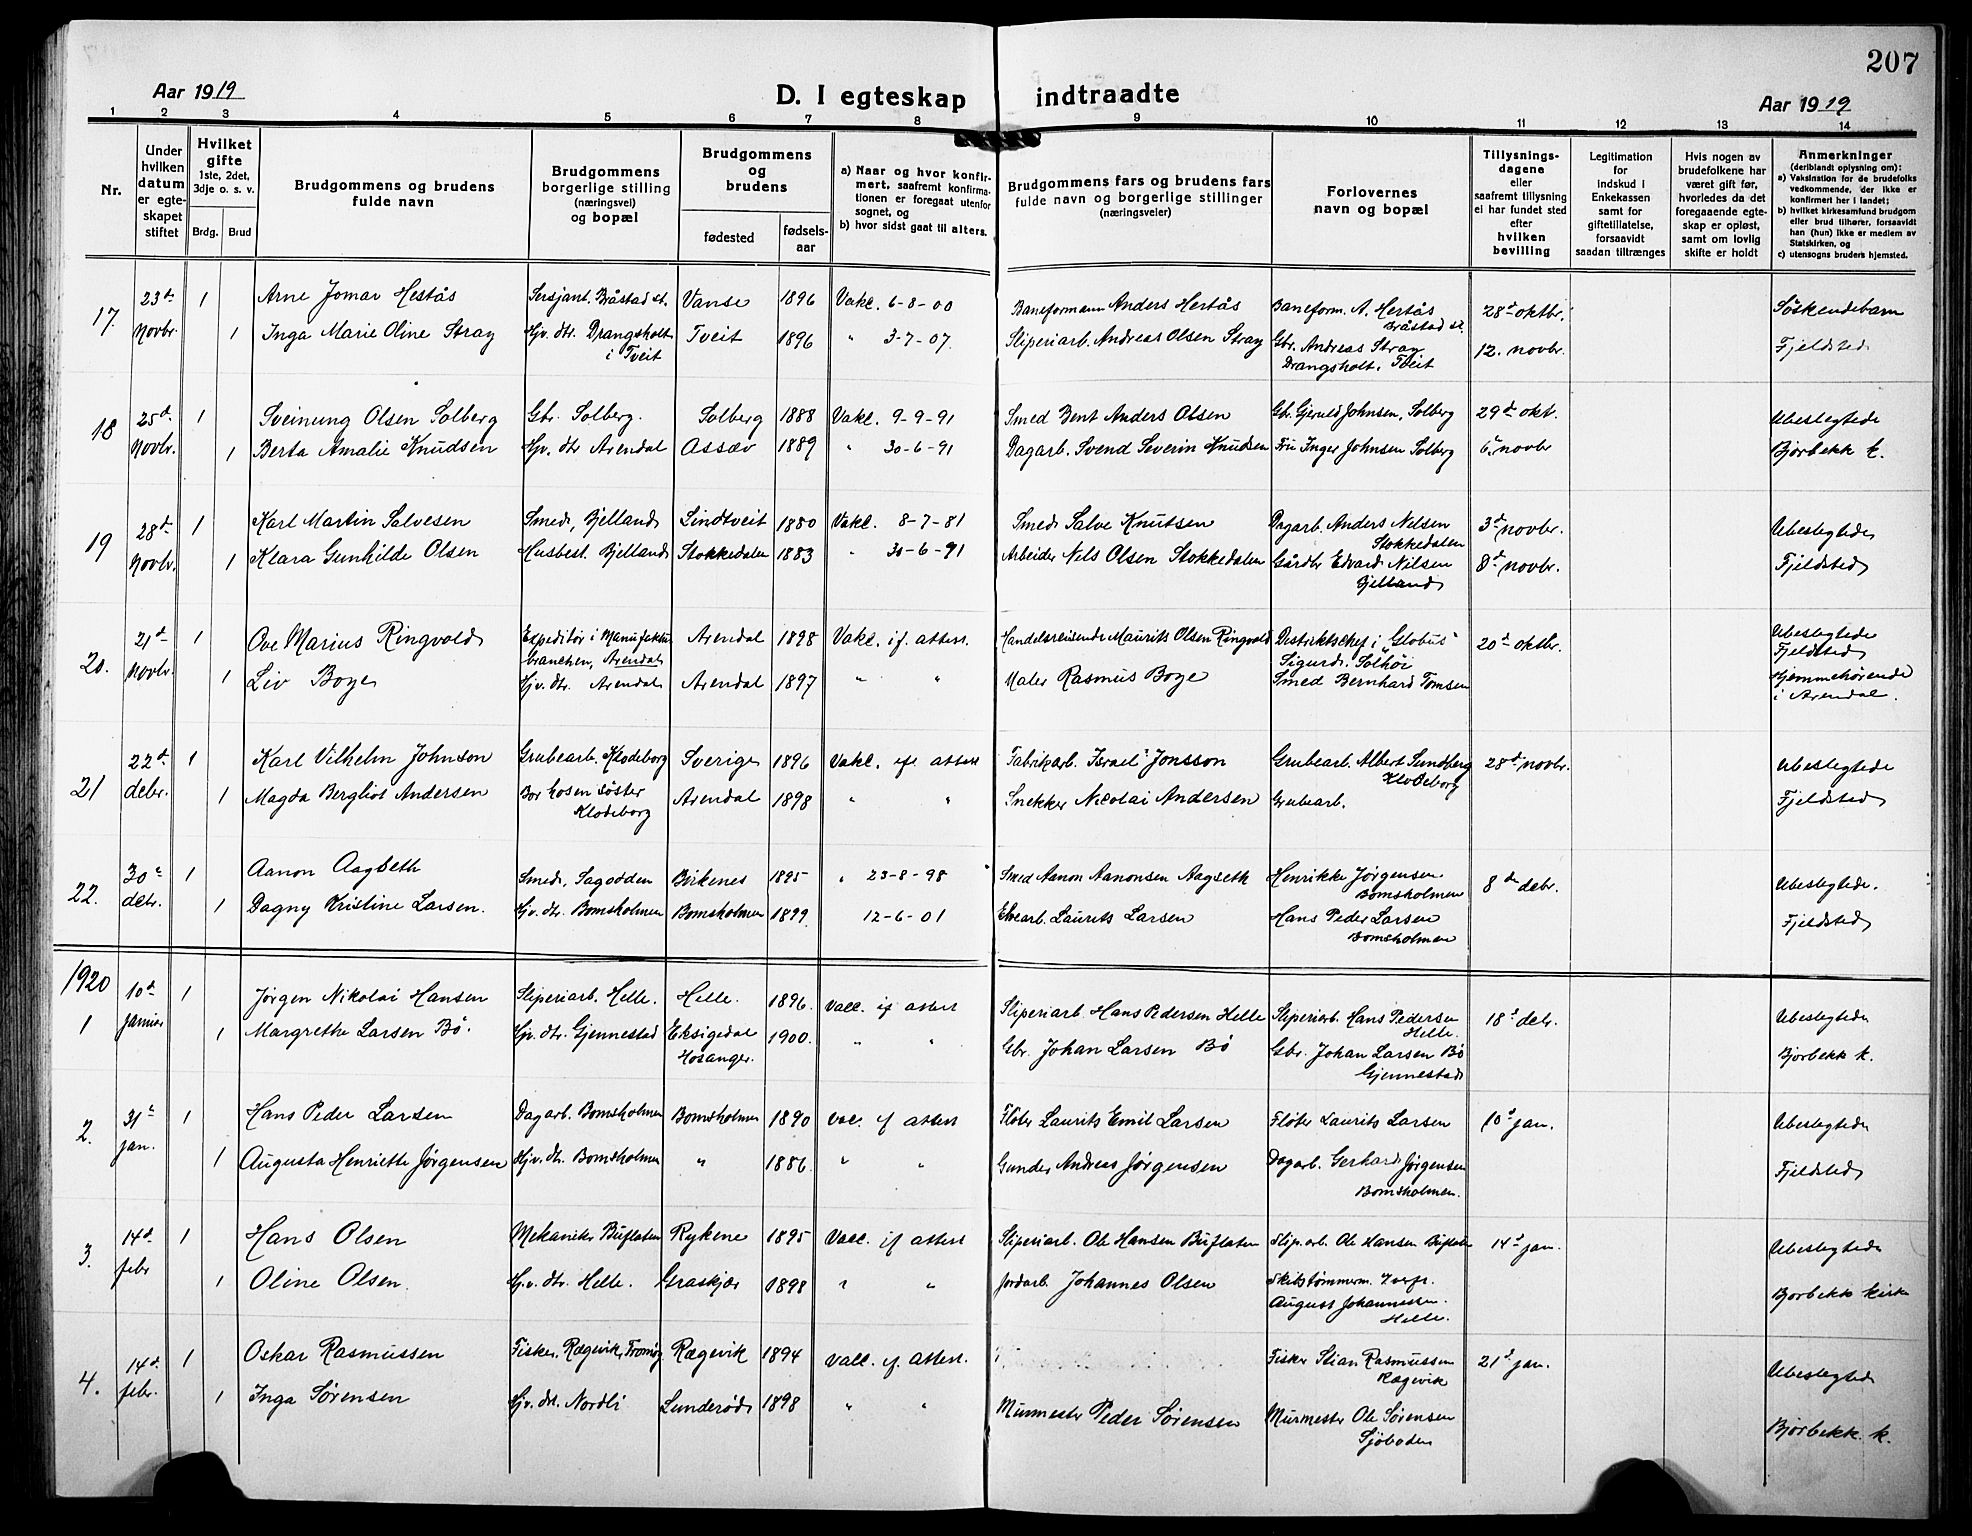 207
Aar 1919
D. I egteskap indtraadte
Aar 1919
1 2 3 4 5 6 7 8 9 10 11 12 13 14
Nr.
Under hvilken datum er egteskapet stiftet
Hvilket gifte 1ste, 2det, 3dje o. s. v.
Brdg. Brud
Brudgommens og brudens fulde navn
Brudgommens og brudens borgerlige stilling (næringsvei) og bopæl
Brudgommens og brudens
fødested
fødselsaar
a) Naar og hvor konfirmert, saafremt konfirmationen er foregaat utenfor sognet, og
b) hvor sidst gaat til alters.
Brudgommens fars og brudens fars fulde navn og borgerlige stillinger (næringsveier)
Forlovernes navn og bopæl
Tillysningsdagene eller saafremt tillysning ei har fundet sted efter hvilken bevilling
Legitimation for indskud i Enkekassen samt for giftetillatelse, forsaavidt saadan tiltrænges
Hvis nogen av brudefolkene har været gift før, hvorledes da det foregaaende egteskap er opløst, samt om lovlig skifte er holdt
Anmerkninger (deriblandt oplysning om):
a) Vaksination for de brudefolks vedkommende, der ikke er konfirmert her i landet;
b) hvilket kirkesamfund brudgom eller brud tilhører, forsaavidt han (hun) ikke er medlem av Statskirken, og
c) utensogns bruders hjemsted.
17. 23d Novbr. 1 Arne Jomar Hestås Sersjant. Bråstad st. Vanse 1896 Vakc. 6-8-00 Baneformann Anders Hertås Baneform. A. Hertås Bråstad st. 28d oktbr. Søskendebarn
1 Inga Marie Oline Stray Hjv. dtr. Drangsholt i Tveit Tveit 1896 " 3-7-07. Sliperiarb. Andreas Olsen Stray Gbr. Andreas Stray Drangsholt. Tveit 12. novbr. Fjeldsted
18 25d Novbr. 1 Sveinung Olsen Solberg Gbr. Solberg. Solberg 1888 Vakc. 9-9-91 Smed Bent Anders Olsen Gb. Gjeruld Johnsen, Solberg 29d okt. Ubeslegtede
1 Berta Amalie Knudsen Hjv. dtr Arendal Assæv 1889 " 30-6-91 Dagarb. Svend Severin Knudsen Fru Inger Johnsen Solberg 6. novbr Bjorbekk k.
19 28d Novbr. 1 Karl Martin Salvesen Smed, Bjelland Lindtveit 1880 Vakc. 8-7-81 Smed Salve Knutsen Dagarb. Anders Nilsen Stokkedalen 3d novbr. Ubeslegtede
1 Klara Gunhilde Olsen Husbest. Bjelland Stokkedalen 1883 " 30-6-91 Arbeider Nels Olsen Stokkedalen Gårdbr Edvard Nilsen Bjelland 8d novbr. Fjeldsted
20. 21d Novbr. 1 Ove Marius Ringvold Expeditør i Manufaktur branchen, Arendal Arendal 1898 Vakc. if. attest. Handelsreisende Maurits Olsen Ringvold Distriktschef i "Globus" Sigurd. Solhöi 20d oktbr. Ubeslegtede Fjeldsted
1 Liv Boye Hjv. dtr. Arendal Arendal 1897 " " Maler Rasmus Boye Smed Bernhard Tomsen Hjemmehørende i Arendal.
21 22d debr. 1 Karl Vilhelm Johnson Grubearb. Klodeborg Sverige 1896 Vakc. ef. attest Fabrikarb. Israel Jonsson Grubearb. Albert Sundberg Klodeborg 28d novbr. Ubeslegtede
1 Magda Bergliot Andersen Bor hos en søster Klodeborg Arendal 1898 " " Snekker Nicolai Andersen Grubearb. Fjeldsted
22. 30e debr. 1 Aanon Aagseth Smed, Sagodden Birkenes 1895 " 23-8-98 Smed Aanon Aanonsen Aagseth Henrikke Jørgensen Bomsholmen 8de debr. Ubeslegtede.
1 Dagny Kristine Larsen. Hjv. dtr. Bomsholmen Bomsholmen 1899 12-6-01 Elvearb. Laurits Larsen Hans Peder Larsen Bomsholmen Fjeldsted
1920
1 10d Januar 1 Jørgen Nikolai Hansen Sliperiarb. Helle. Helle. 1896. Vacc. if attest Sliperiarb. Hans Pedersen Helle Sliperiarb. Hans Pedersen Helle. 18d debr. Ubeslegtede
1 Margrethe Larsen Bö. Hjv. dtr. Gjennestad Eksigedal Hosanger. 1900. " " Gbr. Johan Larsen Bö Gbr. Johan Larsen Bö Gjennestad Bjorbekk k.
2. 31e jan. 1 Hans Peder Larsen Dagarb. Bomsholmen Bomsholmen 1890 Vac. if attest Fløter Laurits Emil Larsen Fløter Laurits Larsen 10d jan. Ubeslegtede
1 Augusta Henriette Jørgensen Hjv. dtr. Bomsholmen " 1886. " " Gunder Andreas Jørgensen Dagarb. Gerhard Jørgensen Bomsholmen. Fjeldsted
3. 14d febr 1 Hans Olsen Mekaniker Buflaten Rykene 1895 Vacc. if attest Sliperiarb. Ole Hansen Buflaten Slip.arb. Ole Hansen Buflaten 14d jan. Ubeslegtede
1 Oline Olsen. Hjv. dtr. Helle. Graskjær 1898 " " Jordarb. Johannes Olsen Skibstømmerm. August Johannessen. Helle. Bjorbekk kirke
4. 14d. febr. 1 Oskar Rasmussen Fisker, Rægevik, Tromøy Rægevik 1894 Vacc. if. attest. Fisker Stian Rasmussen Rægevik 21d jan. Ubeslegtede
1 Inga Sørensen Hjv. dtr. Nordli Lunderød 1898 " " Murmester Peder Sørensen Murmester Ole Sørensen Sjöboden Bjorbekk k.